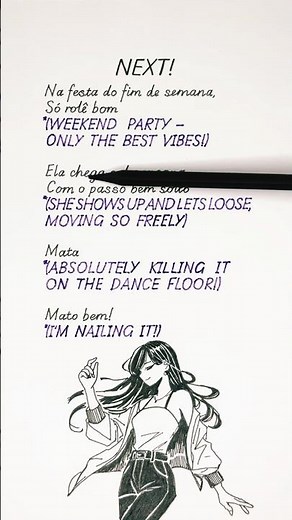 NEXT!
Na festa do fim de semana,
Só rolê bom
*(WEEKEND PARTY –
ONLY THE BEST VIBES!)
Ela chega
Com o passo bem solto
*(SHE SHOWS UP AND LETS LOOSE,
MOVING SO FREELY)
Mata
*(ABSOLUTELY KILLING IT
ON THE DANCE FLOOR!)
Mato bem!
*(I'M NAILING IT!)